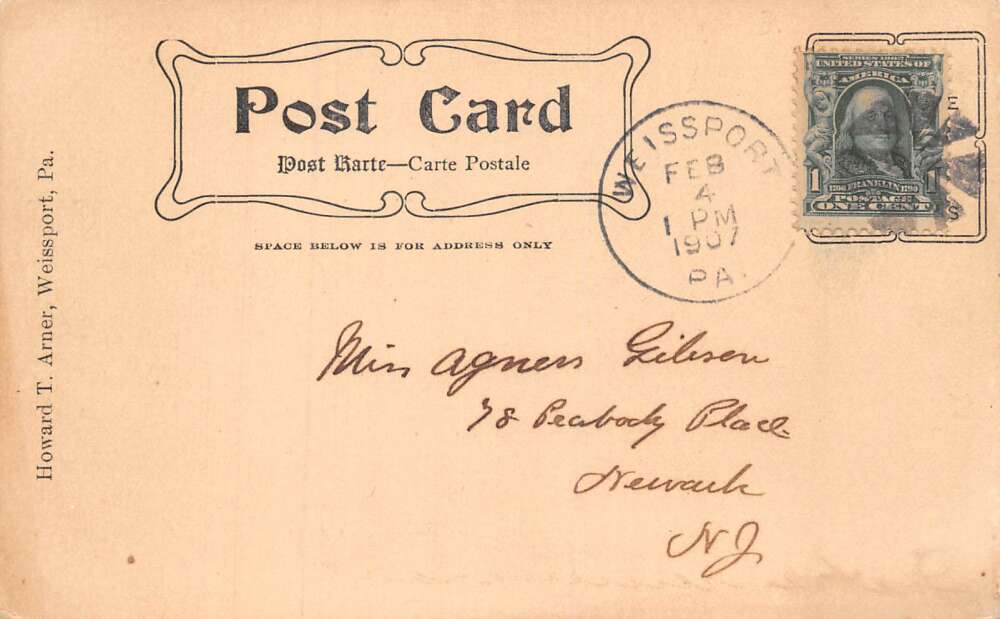 Post Card
Post Karte—Carte Postale
SPACE BELOW IS FOR ADDRESS ONLY
Howard T. Arner, Weissport, Pa.
WEISSPORT
FEB
4
1 PM
1907
PA.
SERIES 1902
UNITED STATES OF
AMERICA
1706 FRANKLIN 1790
1 1
POSTAGE
ONE CENT
E
S
Miss Agness Gibson
78 Peabody Place
Newark
N J